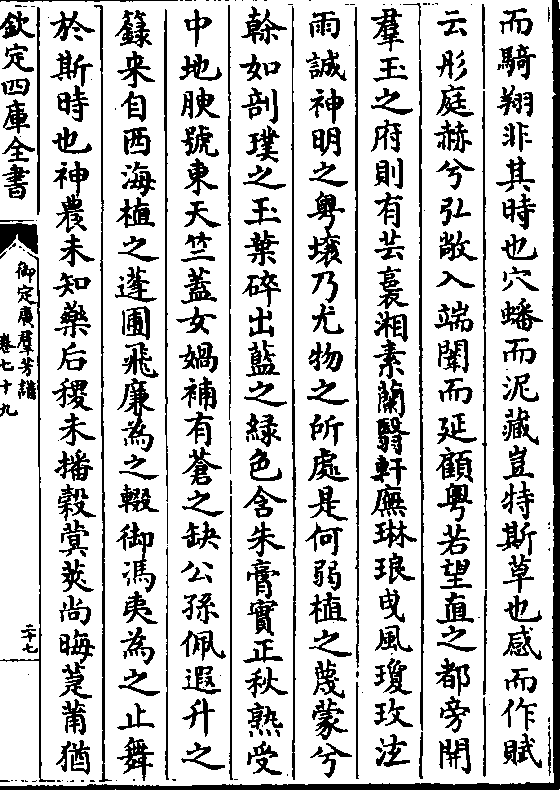 而騎翔非其時也穴蟠而泥藏豈特斯草也感而作賦
云彤庭赫兮弘敞入端闈而延顧粤若望直之都旁開
羣玉之府則有芸裛湘素蘭翳軒廡琳琅曵風瓊玫泫
雨誠神明之粤壤乃尤物之所處是何弱植之蔑蒙兮
榦如剖璞之玉葉碎出藍之緑色含朱膏實正秋熟受
中地腴號東天竺蓋女媧補有蒼之缺公孫佩遐升之
籙来自西海植之蓬圃飛廉為之輟御馮夷為之止舞
於斯時也神農未知藥后稷未播穀蓂莢尚晦萐莆猶
欽定四庫全書
御定廣羣芳譜
卷七十九
二十七